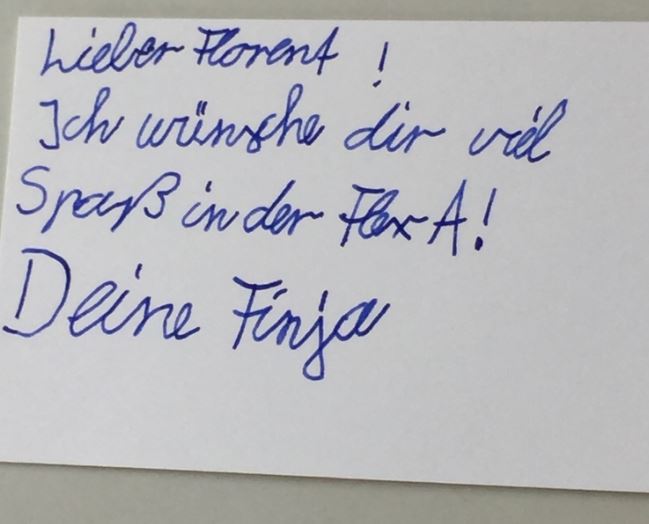 Lieber Florent !
Ich wünsche dir viel
Spaß in der Flex A!
Deine Finja